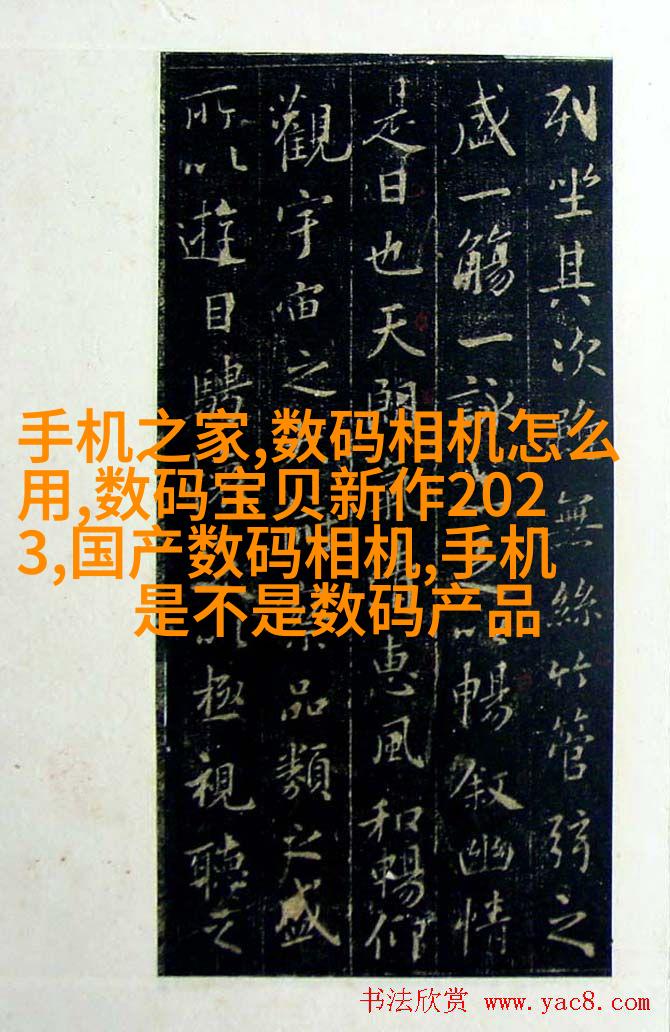 列坐其次無絲竹管弦之
盛一觴一詠以暢叙幽情
是日也天朗惠風和暢仰
觀宇宙之品類之盛
所以遊目騁以極視聽之
手机之家,数码相机怎么
用,数码宝贝新作202
3,国产数码相机,手机
是不是数码产品
书法欣赏 www.yac8.com